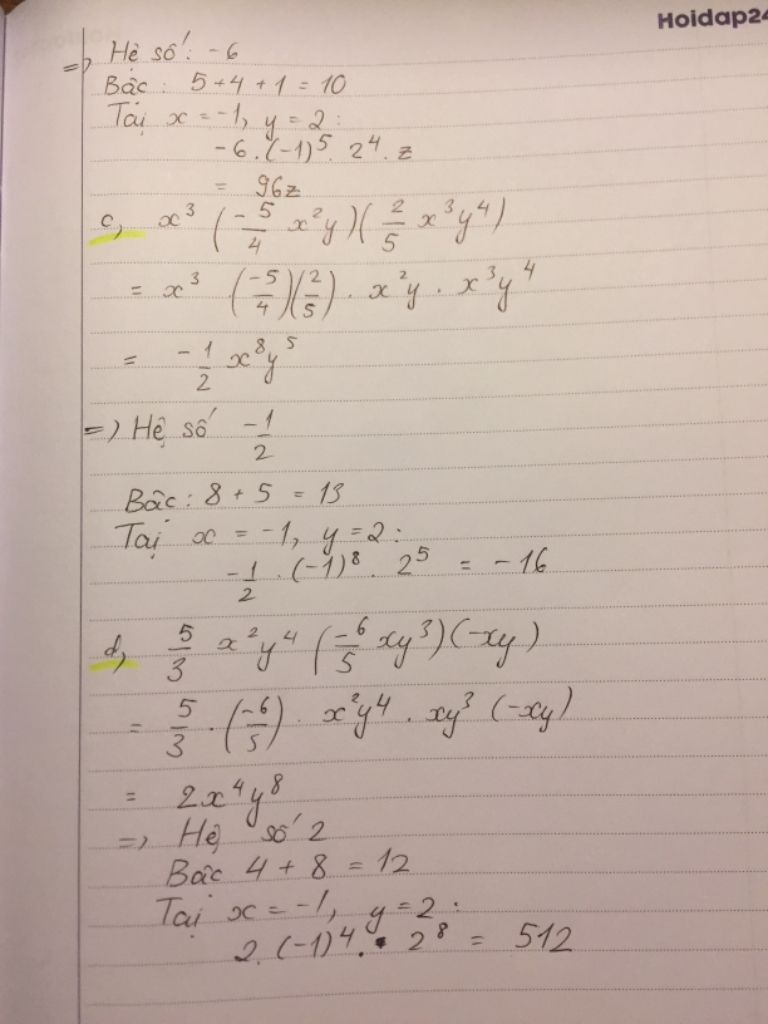 Hoidap24
=> Hệ số: -6
Bậc: 5+4+1 = 10
Tại x = -1, y = 2:
-6.(-1)⁵.2⁴.z
= 96z
c, x³ (-5/4 x²y)(2/5 x³y⁴)
= x³ (-5/4)(2/5) . x²y . x³y⁴
= -1/2 x⁸y⁵
=> Hệ số -1/2
Bậc: 8 + 5 = 13
Tại x = -1, y = 2:
-1/2 . (-1)⁸ . 2⁵ = -16
d, 5/3 x²y⁴ (-6/5 xy³)(-xy)
= 5/3 . (-6/5) . x²y⁴ . xy³ (-xy)
= 2x⁴y⁸
=> Hệ số 2
Bậc 4 + 8 = 12
Tại x = -1, y = 2:
2.(-1)⁴. 2⁸ = 512